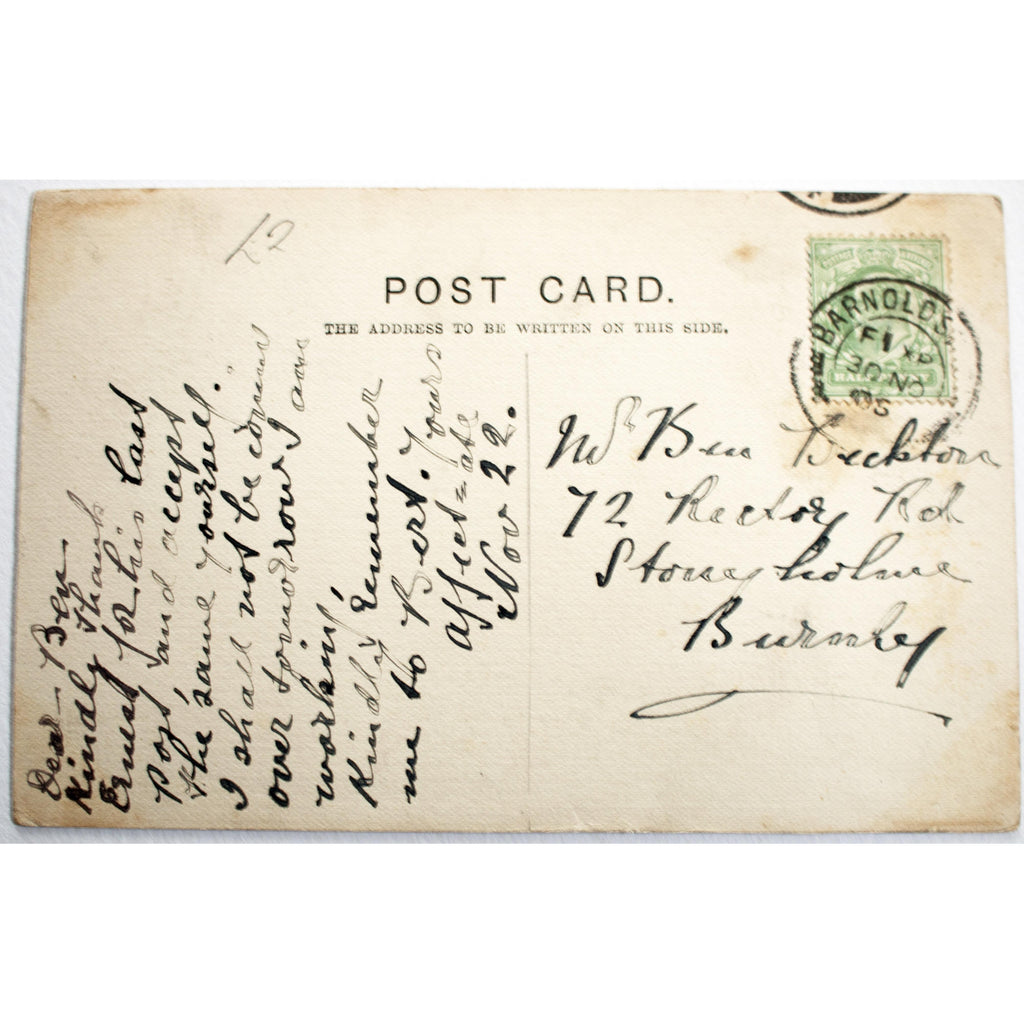 £2
POST CARD.
THE ADDRESS TO BE WRITTEN ON THIS SIDE.
BARNOLDS
F1 XP
30 NO
05
HALFPENNY
Dear Ben
Kindly thank
Ernest for his last
P.O.P. and accept
the same yourself.
I shall not be coming
over tomorrow I am
working,
Kindly remember
me to Bert. Yours
affect=ate
Nov 22.
Mr Ben Beckton
72 Rectory Rd
Stoneyholme
Burnley